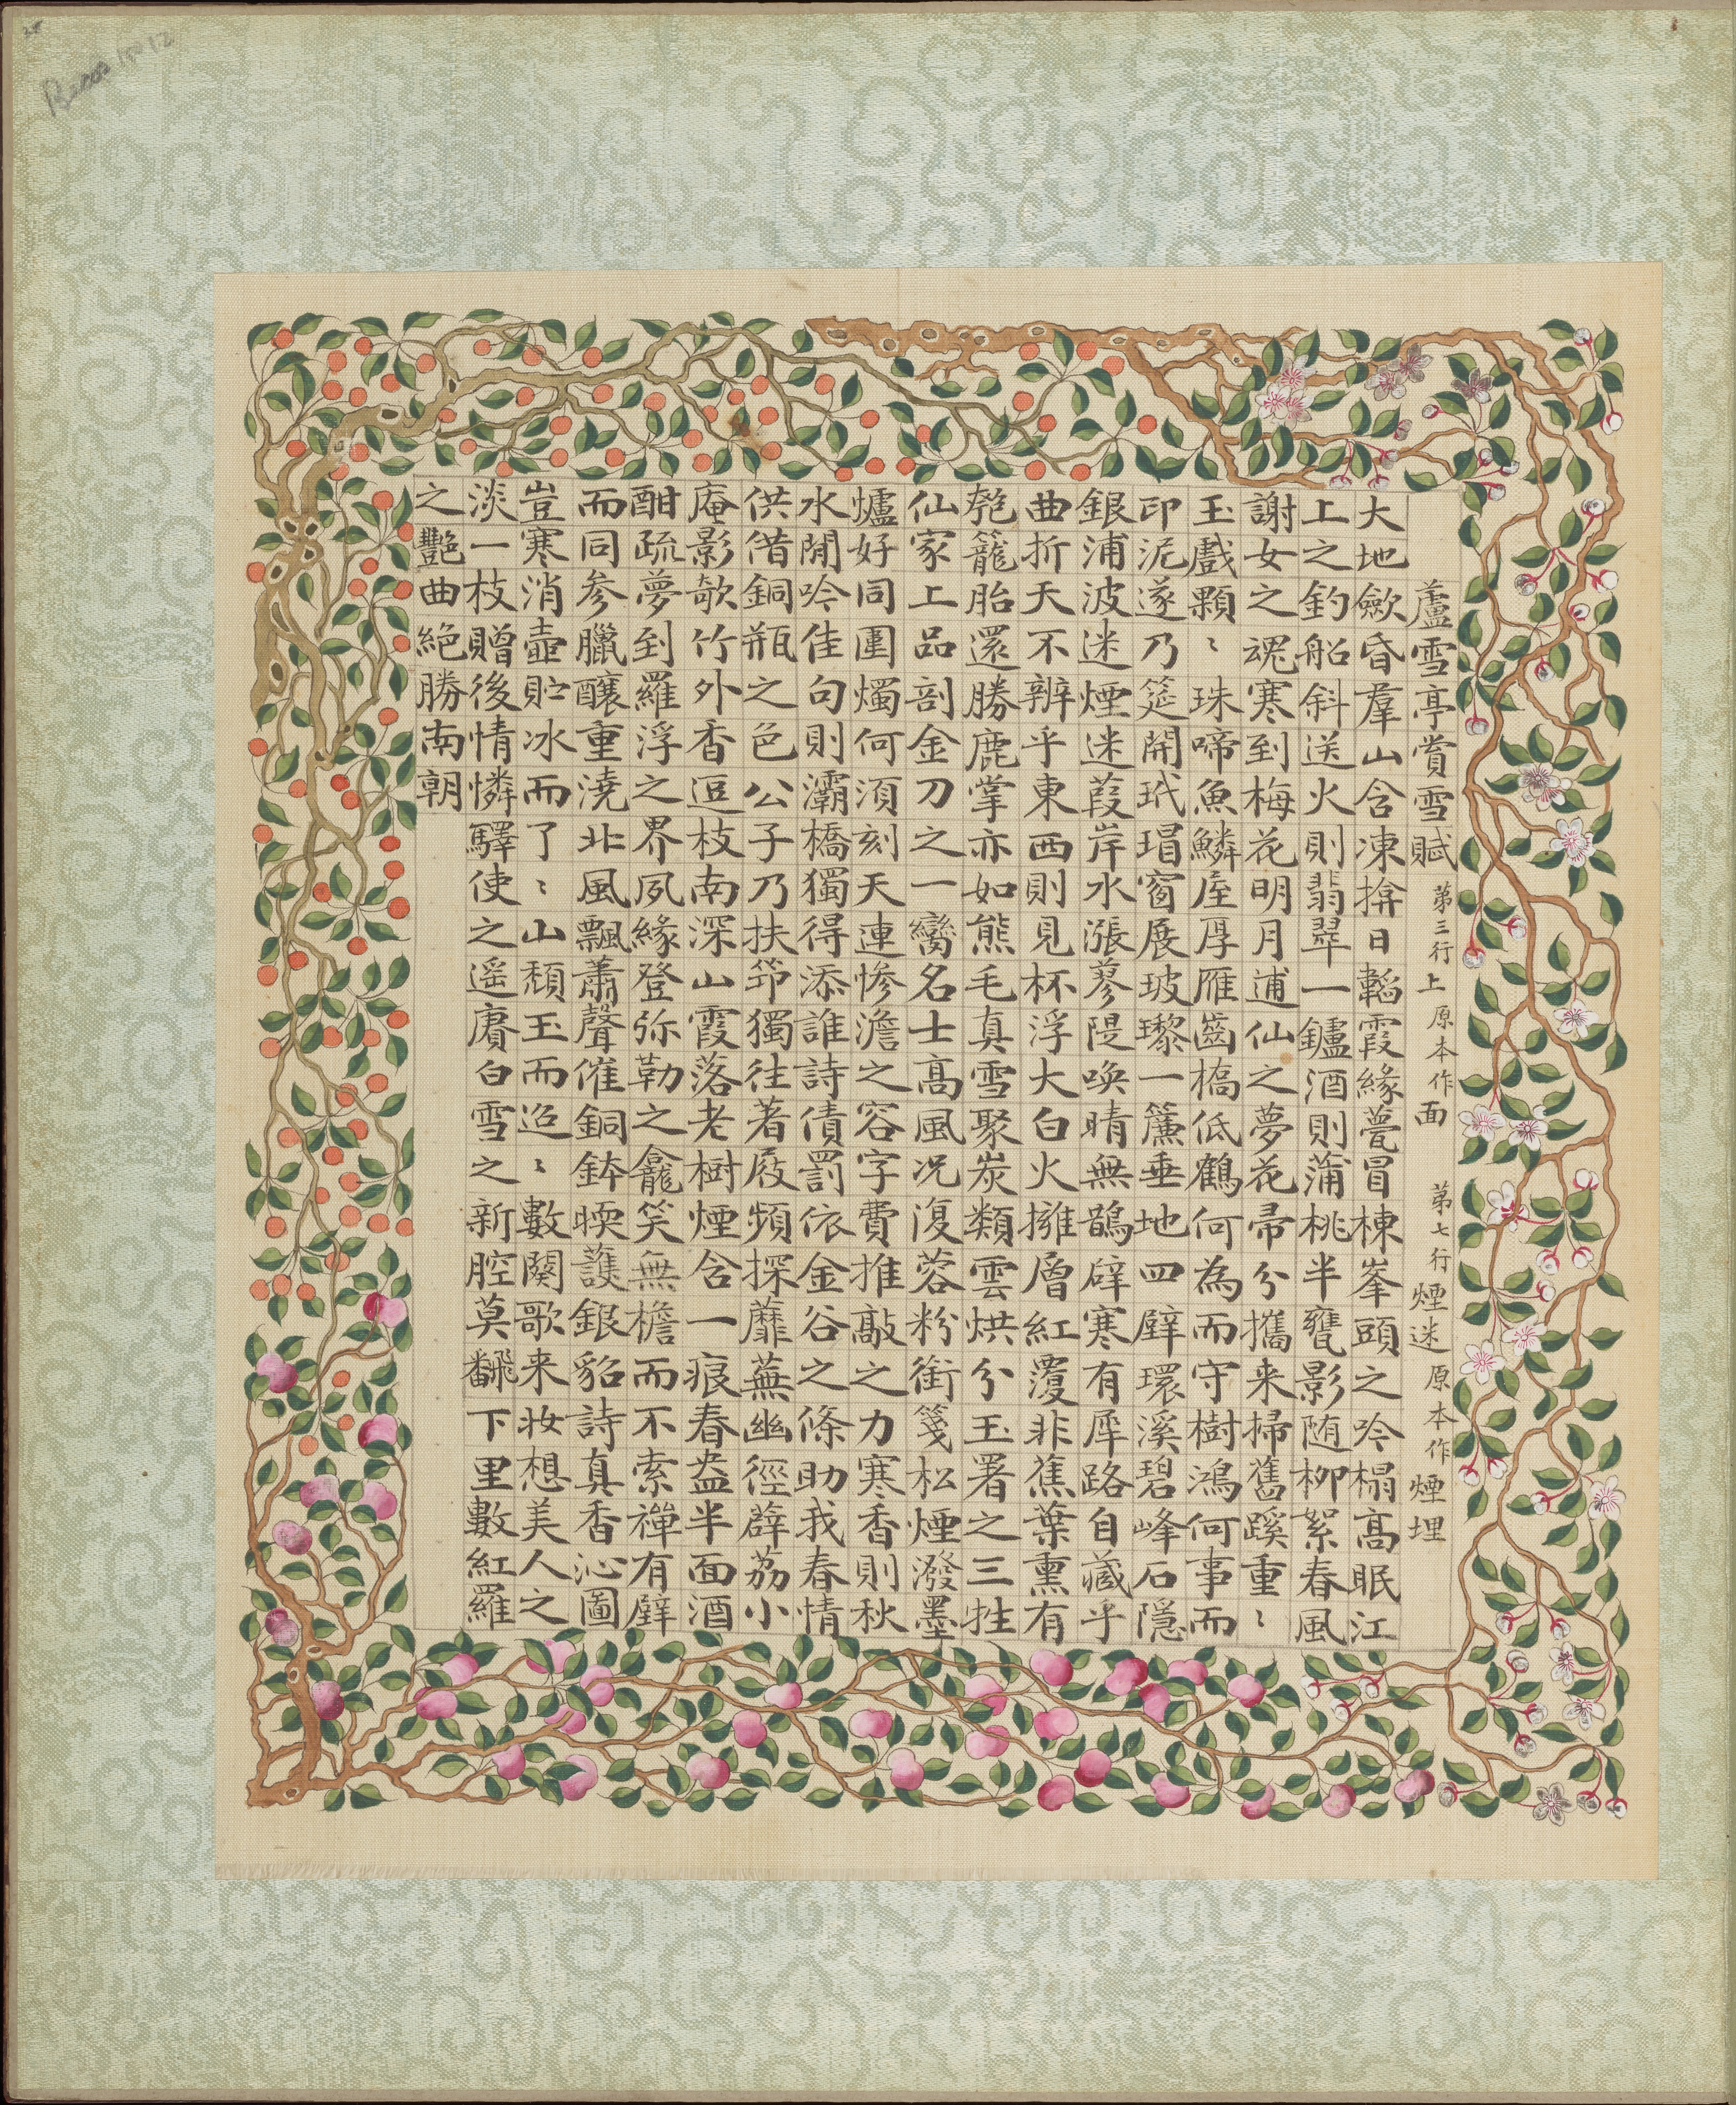 蘆雪亭賞雪賦 第三行上原本作面 第七行煙迷原本作煙埋
大地歛昏羣山含凍揜日韜霞緣甍冒棟峯頭之吟榻高眠江
上之釣船斜送火則翡翠一鑪酒則蒲桃半甕影随柳絮春風
謝女之魂寒到梅花明月逋仙之夢花帚分攜来掃舊蹊重〻
玉戲顆〻珠啼魚鱗庢厚雁齒橋低鶴何為而守樹鴻何事而
印泥遂乃筵開玳瑁窗展玻瓈一簾垂地四壁環溪碧峰石隱
銀浦波迷煙迷葭岸水漲蓼隄喚晴無鵲辟寒有犀路自藏乎
曲折天不辨乎東西則見杯浮大白火擁層紅覆非蕉葉熏有
匏籠胎還勝鹿掌亦如熊毛真雪聚炭類雲烘分玉署之三牲
仙家上品剖金刀之一臠名士高風况復蓉粉銜箋松煙潑墨
爐好同圍燭何須刻天連慘澹之容字費推敲之力寒香則秋
水閒吟佳句則灞橋獨得添誰詩債罰依金谷之條助我春情
供借銅瓶之色公子乃扶筇獨往著屐頻探蘼蕪幽徑薜荔小
庵影欹竹外香逗枝南深山霞落老樹煙含一痕春盎半面酒
酣疏夢到羅浮之界夙緣登弥勒之龕笑無檐而不索禪有壁
而同参臘釀重澆北風飄蕭聲催銅鉢暖護銀貂詩真香沁圖
豈寒消壺貯冰而了〻山頹玉而迢〻數闋歌来妝想美人之
淡一枝贈後情憐驛使之遥賡白雪之新腔莫飜下里數紅羅
之艷曲絕勝南朝